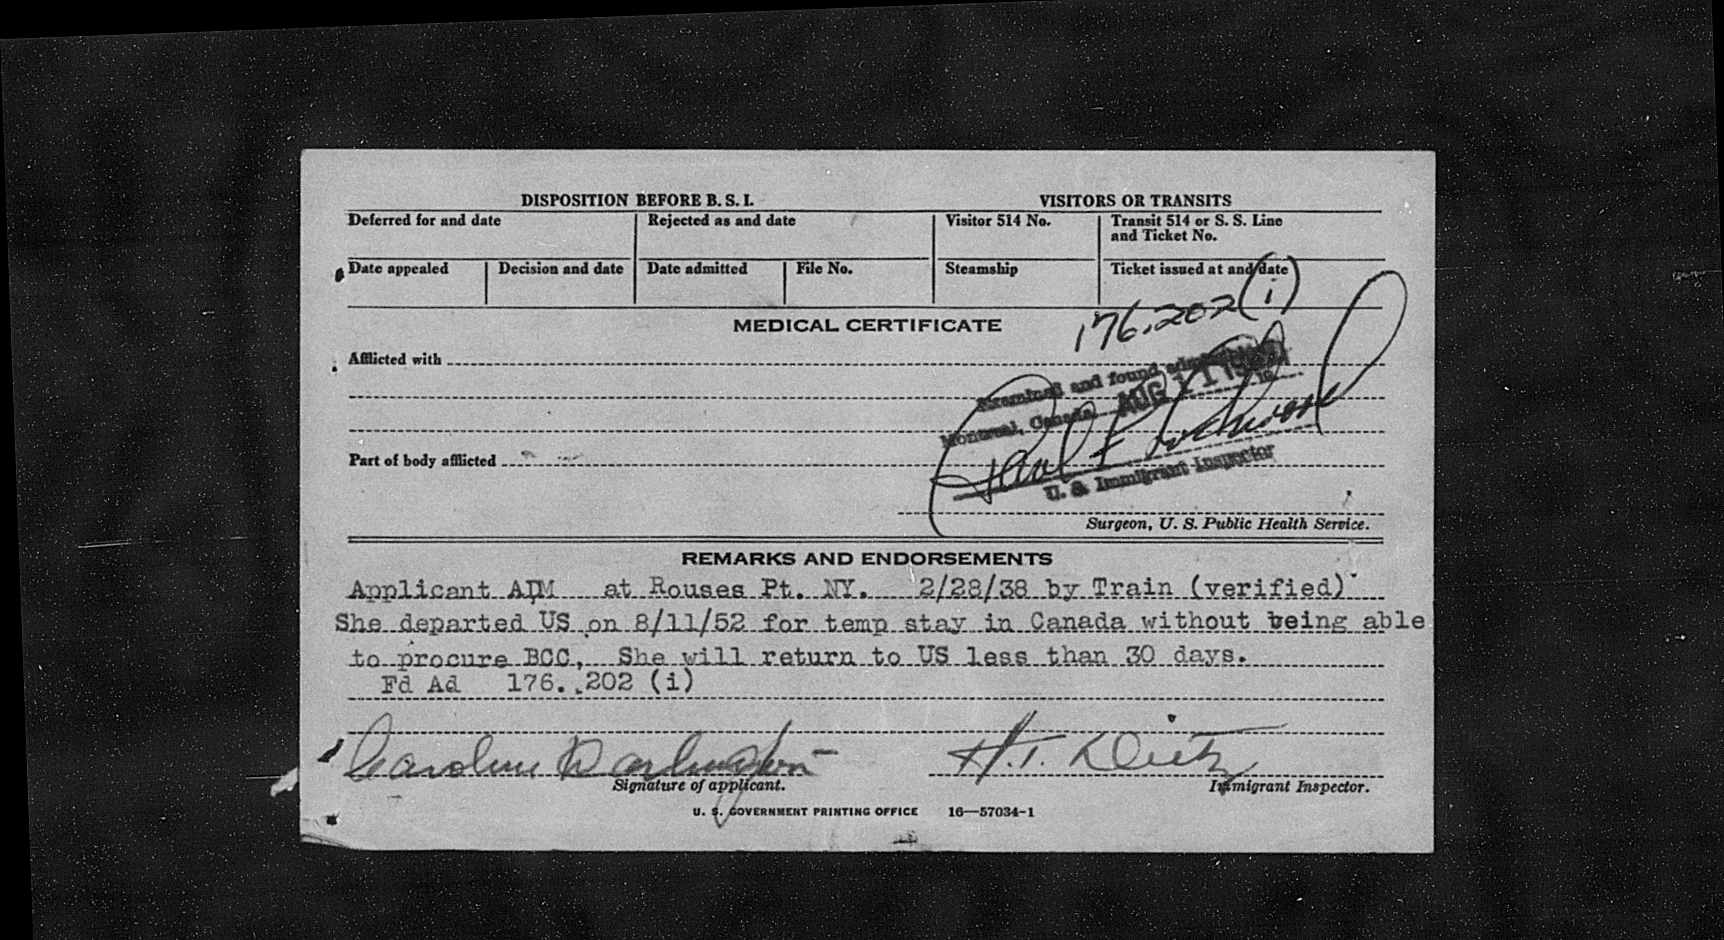 DISPOSITION BEFORE B. S. I.
VISITORS OR TRANSITS
Deferred for and date
Rejected as and date
Visitor 514 No.
Transit 514 or S. S. Line
and Ticket No.
Date appealed
Decision and date
Date admitted
File No.
Steamship
Ticket issued at and date
176.202 (i)
MEDICAL CERTIFICATE
Afflicted with
Examined and found
Montreal, Canada, AUG 11
Part of body afflicted
U. S. Immigrant Inspector
Surgeon, U. S. Public Health Service.
REMARKS AND ENDORSEMENTS
Applicant ADM at Rouses Pt. NY. 2/28/38 by Train (verified)
She departed US on 8/11/52 for temp stay in Canada without being able
to procure BCC, She will return to US less than 30 days.
Fd Ad 176. .202 (i)
Caroline Darlington H.T. Dietz
Signature of applicant.
Immigrant Inspector.
U. S. GOVERNMENT PRINTING OFFICE 16—57034-1